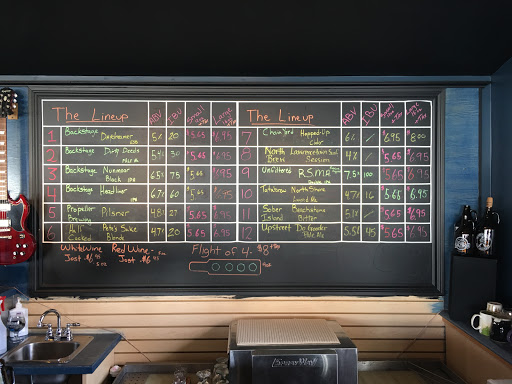 The Lineup ABV IBU Small Large
1 Backstage Daydreamer 5% 20 $5.65 $6.95
2 Backstage Dirty Deeds 5.4 30 5.65 6.95
3 Backstage Nunmoor Black IPA 6.5% 75 6.95
4 Backstage Headliner IPA 6.7% 60 6.95
5 Propeller Brewing Pilsner 4.8% 27 5.65 6.95
6 Half Cocked Pete's Sake Blonde 4.7% 20 5.65 6.95
The Lineup ABV IBU Small Large
7 Chain Yard Hopped-Up Cider 6% $6.95 $8.00
8 North Brew Session 4% $5.65 $6.95
9 Unfiltered 7.5% 100 $5.65 $6.95
10 Tatabrew North Shore 4.7% 16 $5.65 $6.95
11 Sober Island Bitter $5.65 $6.95
12 Upstreet Do Gooder Pale Ale 5.5% 45 $5.65 $6.95
White Wine - Red Wine -
Just Just
Flight of 4 - $8